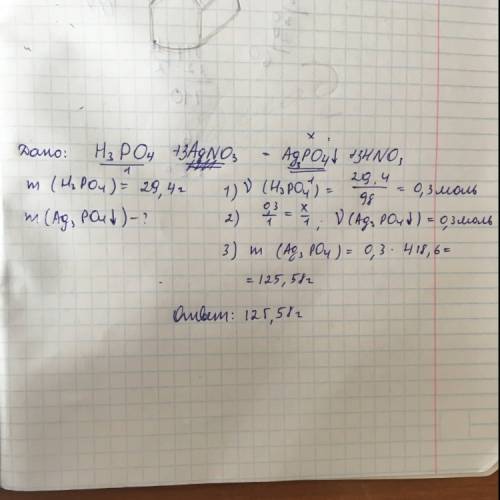 x
Дано: H₃PO₄ + 3AgNO₃ - Ag₃PO₄↓ + 3HNO₃
1
m (H₃PO₄) = 29,4г 1) ν (H₃PO₄) = 29,4/98 = 0,3 моль
m (Ag₃PO₄↓) - ? 2) 0,3/1 = x/1; ν (Ag₃PO₄↓) = 0,3 моль
3) m (Ag₃PO₄) = 0,3 · 418,6 =
= 125,58г
Ответ: 125,58г